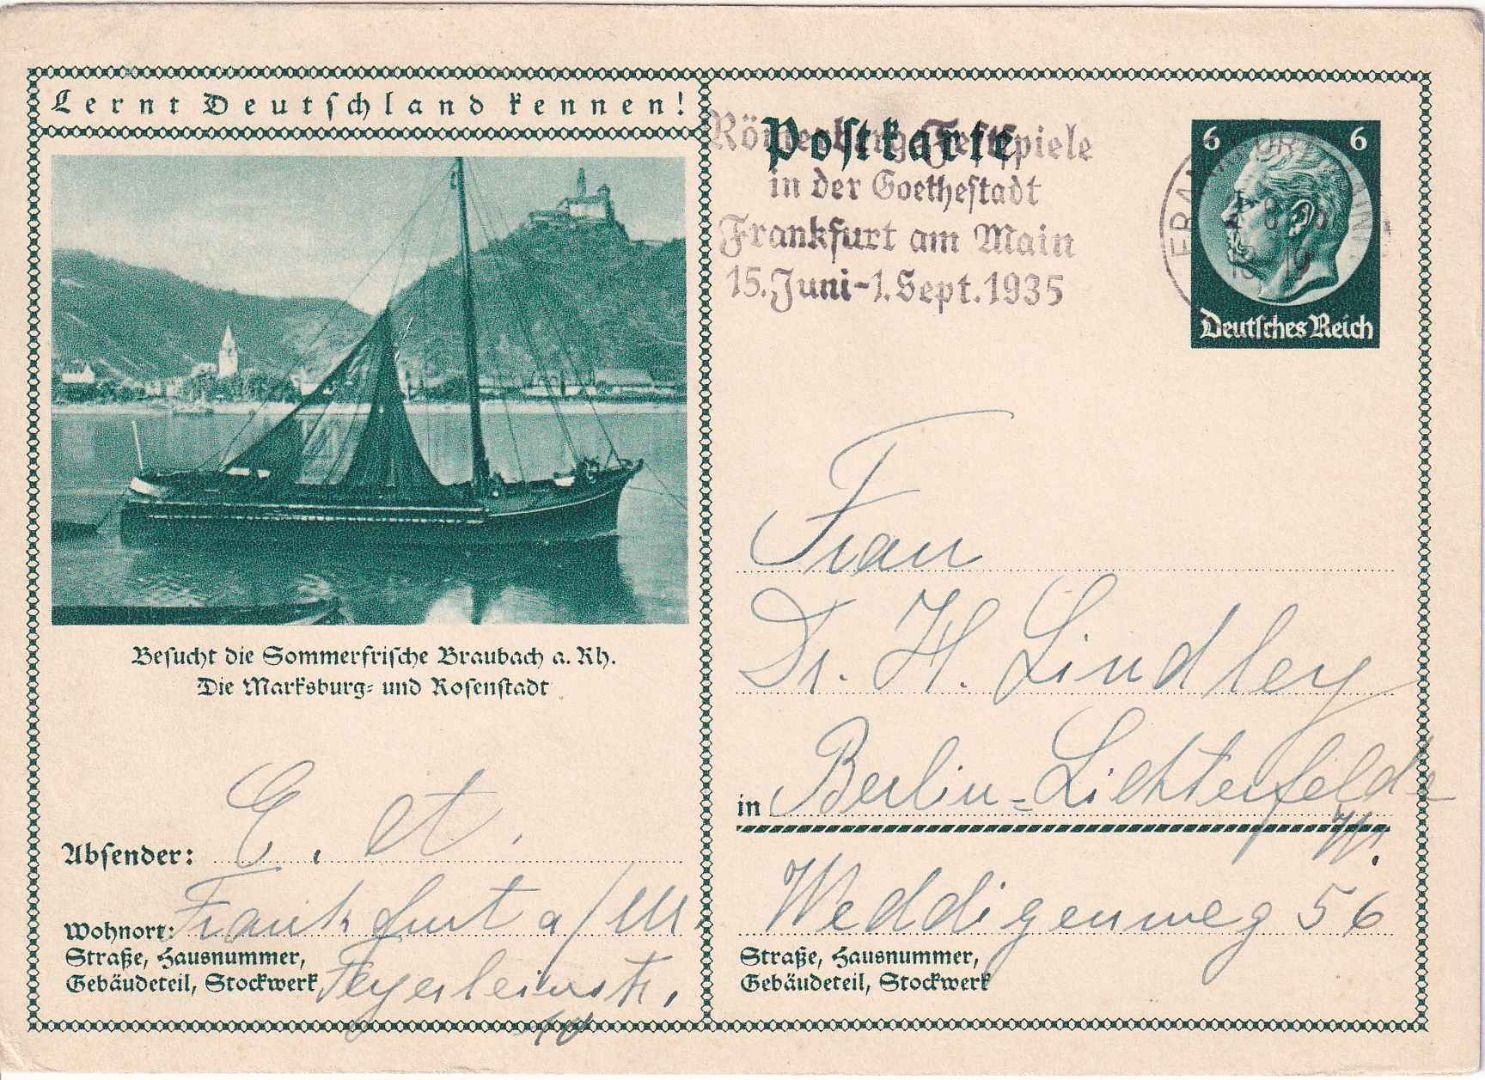 Lernt Deutſchland kennen!
Beſucht die Sommerfriſche Braubach a. Rh.
Die Marksburg- und Roſenſtadt
Absender:
Frankfurt a/M.
Wohnort:
Straße, Hausnummer,
Gebäudeteil, Stockwerk
Feyerleinstr.
10
Poſtkarte
Römerberg-Feſtſpiele
in der Goetheſtadt
Frankfurt am Main
15. Juni-1. Sept. 1935
6 6
FRANKFURT (MAIN)
Deutſches Reich
Frau
Dr. H. Lindley
in Berlin-Lichterfelde
Weddigenweg 56
Straße, Hausnummer,
Gebäudeteil, Stockwerk